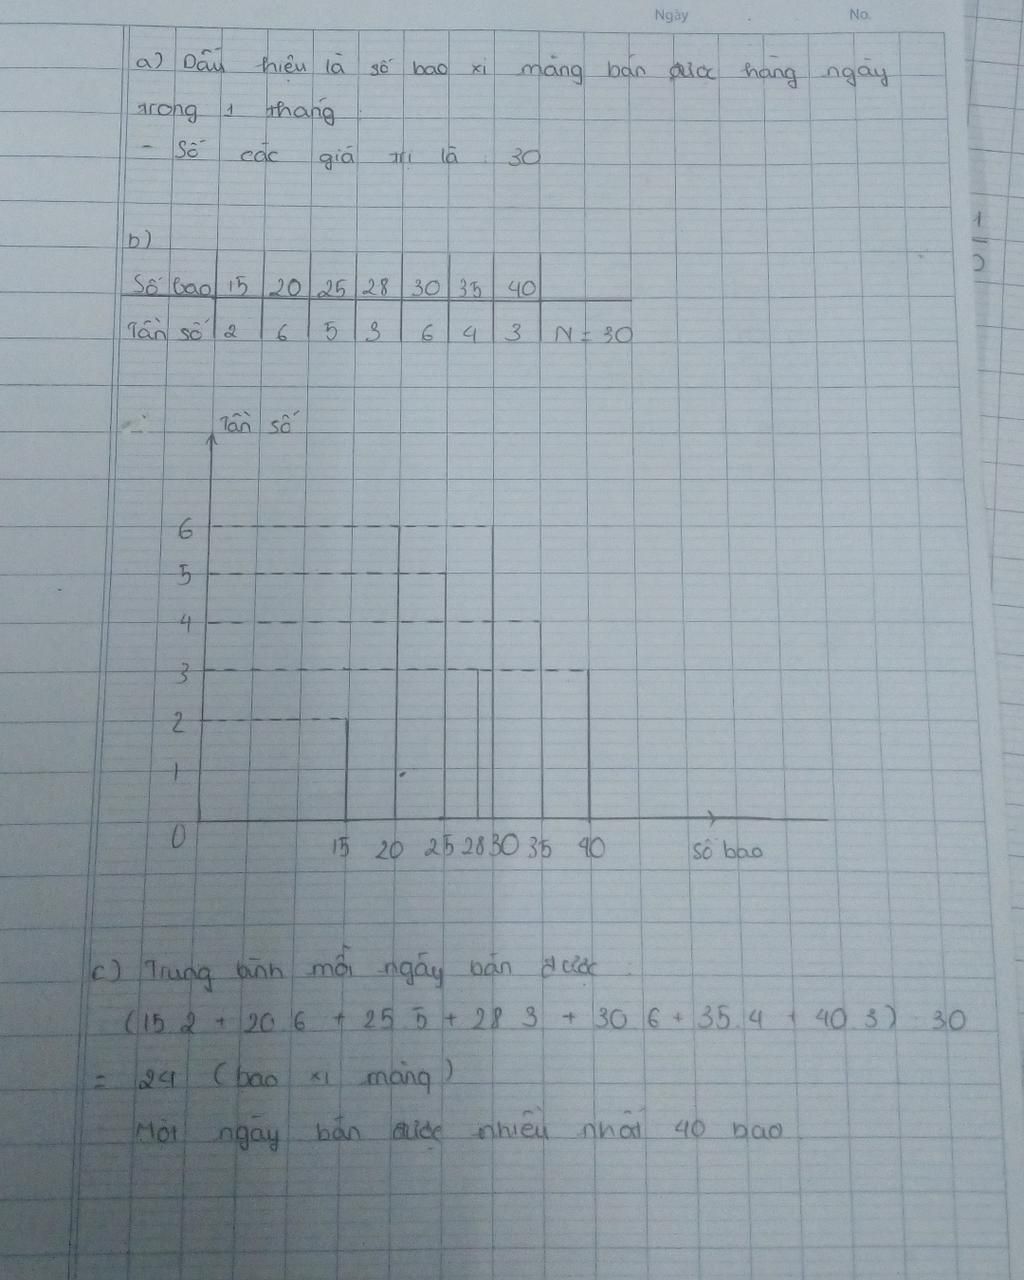 Ngày No.
a) Dấu hiệu là số bao xi măng bán được hàng ngày
trong 1 tháng
- Số các giá trị là 30
1
2
b)
Số bao 15 20 25 28 30 35 40
Tần số 2 6 5 3 6 4 3 N = 30
Tần số
6
5
4
3
2
1
0
15 20 25 28 30 35 40 số bao
c) Trung bình mỗi ngày bán được
(15 2 + 20 6 + 25 5 + 28 3 + 30 6 + 35.4 + 40 3) 30
= 24 (bao xi măng)
Mỗi ngày bán được nhiều nhất 40 bao